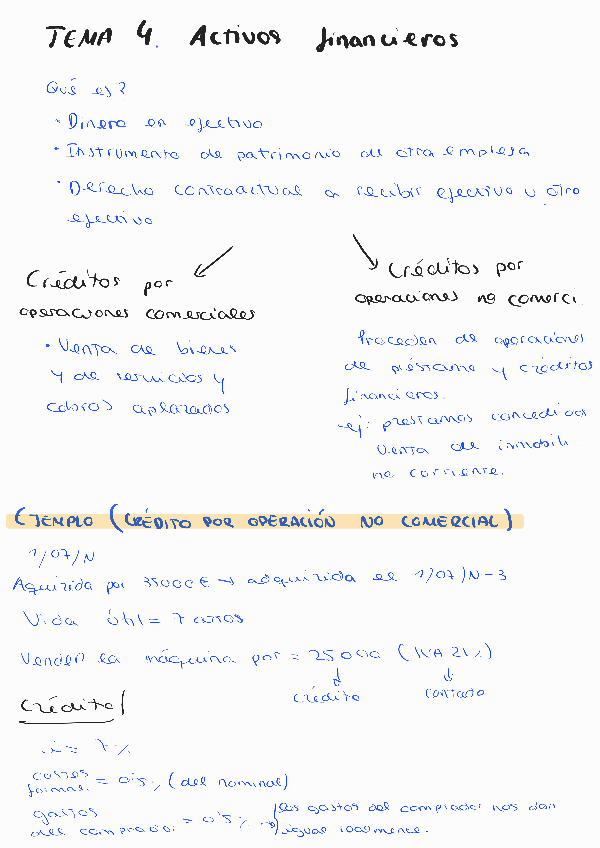 TEMA 4. Activos financieros
Qué es?
· Dinero en efectivo
· Instrumento de patrimonio de otra empresa
· Derecho contractual a recibir efectivo u otro
efectivo
Créditos por
operaciones comerciales
· Venta de bienes
y de servicios y
cobros aplazados
Créditos por
operaciones no comerci.
Proceden de operaciones
de préstamo y créditos
financieros.
-ej: prestamos concedidos
Venta de inmobili
no corriente.
EJEMPLO (CRÉDITO POR OPERACIÓN NO COMERCIAL)
1/07/N
Aquirida por 35000€ → adquirida el 1/07/N-3
Vida útil = 7 años
Venden la máquina por = 25000 (IVA 21%)
↓ ↓
crédito contado
Crédito
i = 7%
costes
formal. = 0'5% (del nominal)
gastos
del comprador = 0'5% → los gastos del comprador nos dan
igual realmente.